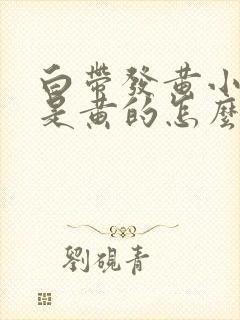 白帶發黃小
是黃的怎麼
劉硯青